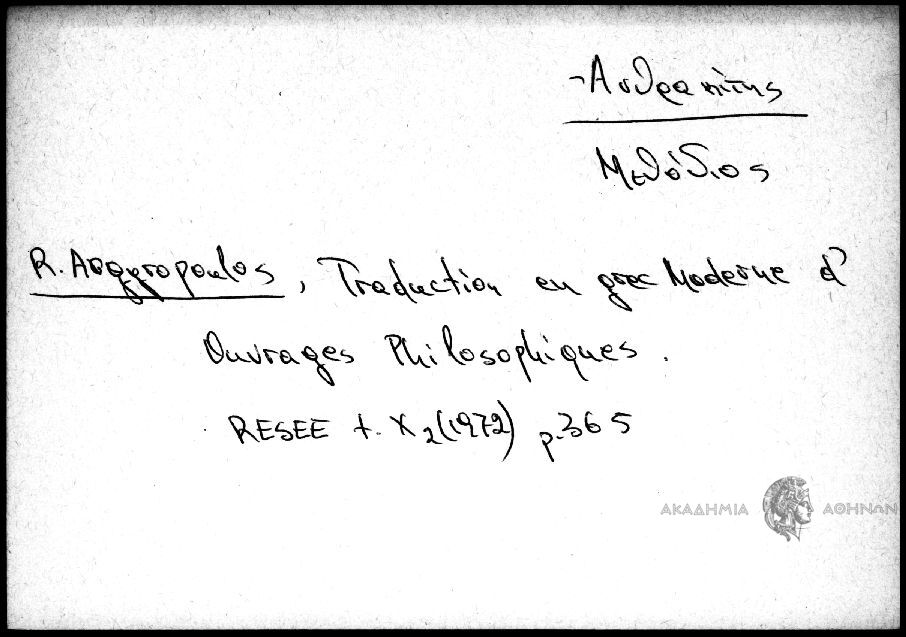 Ανθρακίτης
Μεθόδιος
R. Argyropoulos, Traduction en grec Moderne d'
Ouvrages Philosophiques.
RESEE t. X2 (1972) p.365
ΑΚΑΔΗΜΙΑ ΑΘΗΝΩΝ